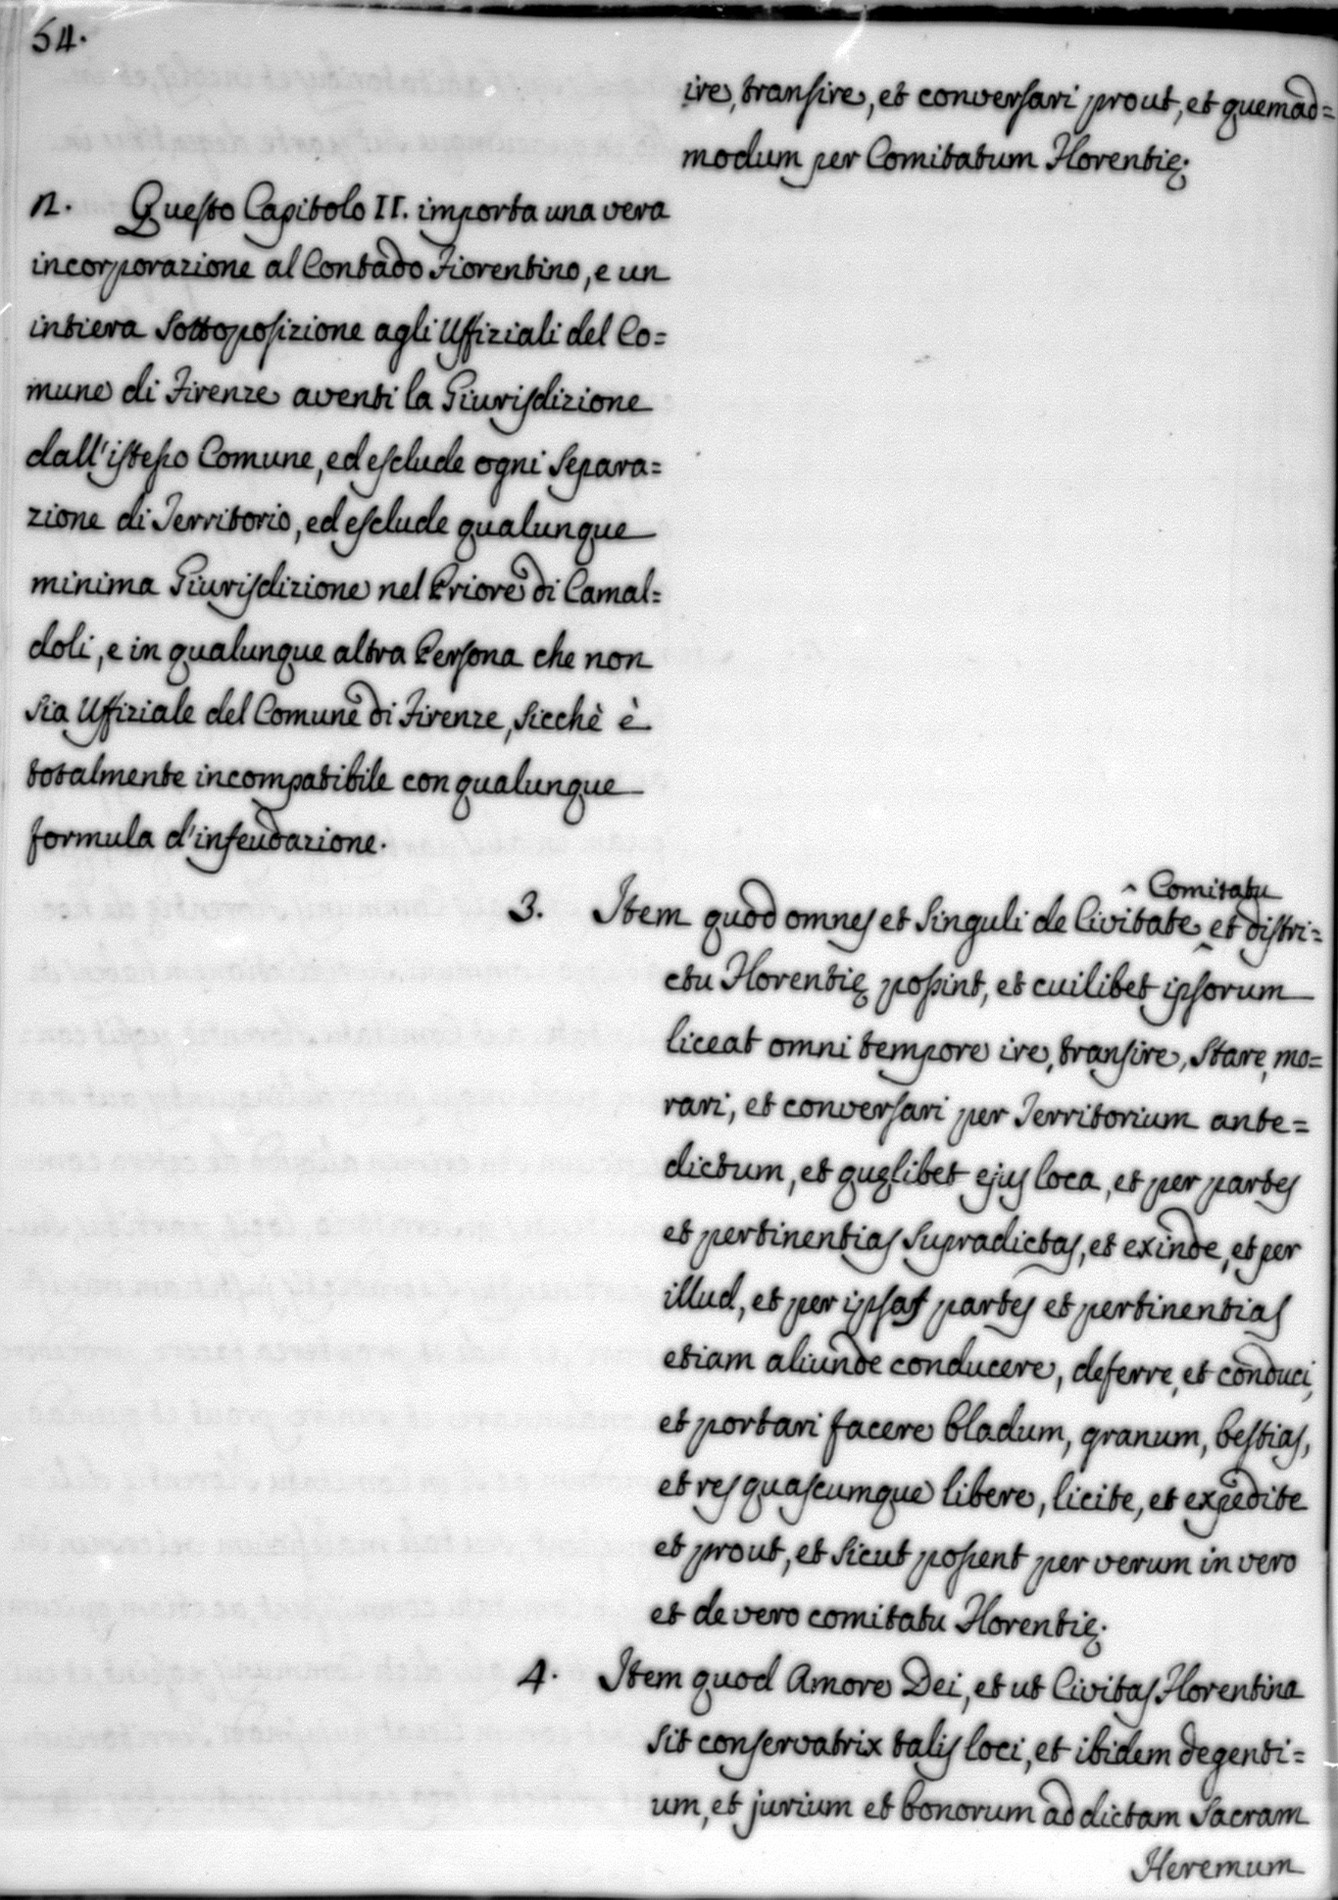 54.
ire, transire, et conversari prout, et quemad=
modum per Comitatum Florentię.
n. Questo Capitolo II. importa una vera
incorporazione al Contado Fiorentino, e un
intiera Sottoposizione agli Uffiziali del Co=
mune di Firenze aventi la Giurisdizione
dall'istesso Comune, ed esclude ogni Separa=
zione di Territorio, ed esclude qualunque
minima Giurisdizione nel Priore di Camal=
doli, e in qualunque altra Persona che non
Sia Uffiziale del Comune di Firenze, Sicchè è
totalmente incompatibile con qualunque
formula d'infeudazione.
^ Comitatu
3. Item quod omnes et Singuli de Civitate ^ et distri=
ctu Florentię possint, et cuilibet ipsorum
liceat omni tempore ire, transire, Stare, mo=
rari, et conversari per Territorium ante=
dictum, et quęlibet ejus loca, et per partes
et pertinentias Supradictas, et exinde, et per
illud, et per ipsas partes et pertinentias
etiam aliunde conducere, deferre, et conduci,
et portari facere bladum, granum, bestias,
et res quascumque libere, licite, et expedite
et prout, et Sicut possent per verum in vero
et de vero comitatu Florentię.
4. Item quod Amore Dei, et ut Civitas Florentina
Sit conservatrix talis loci, et ibidem degenti=
um, et jurium et bonorum ad dictam Sacram
Heremum